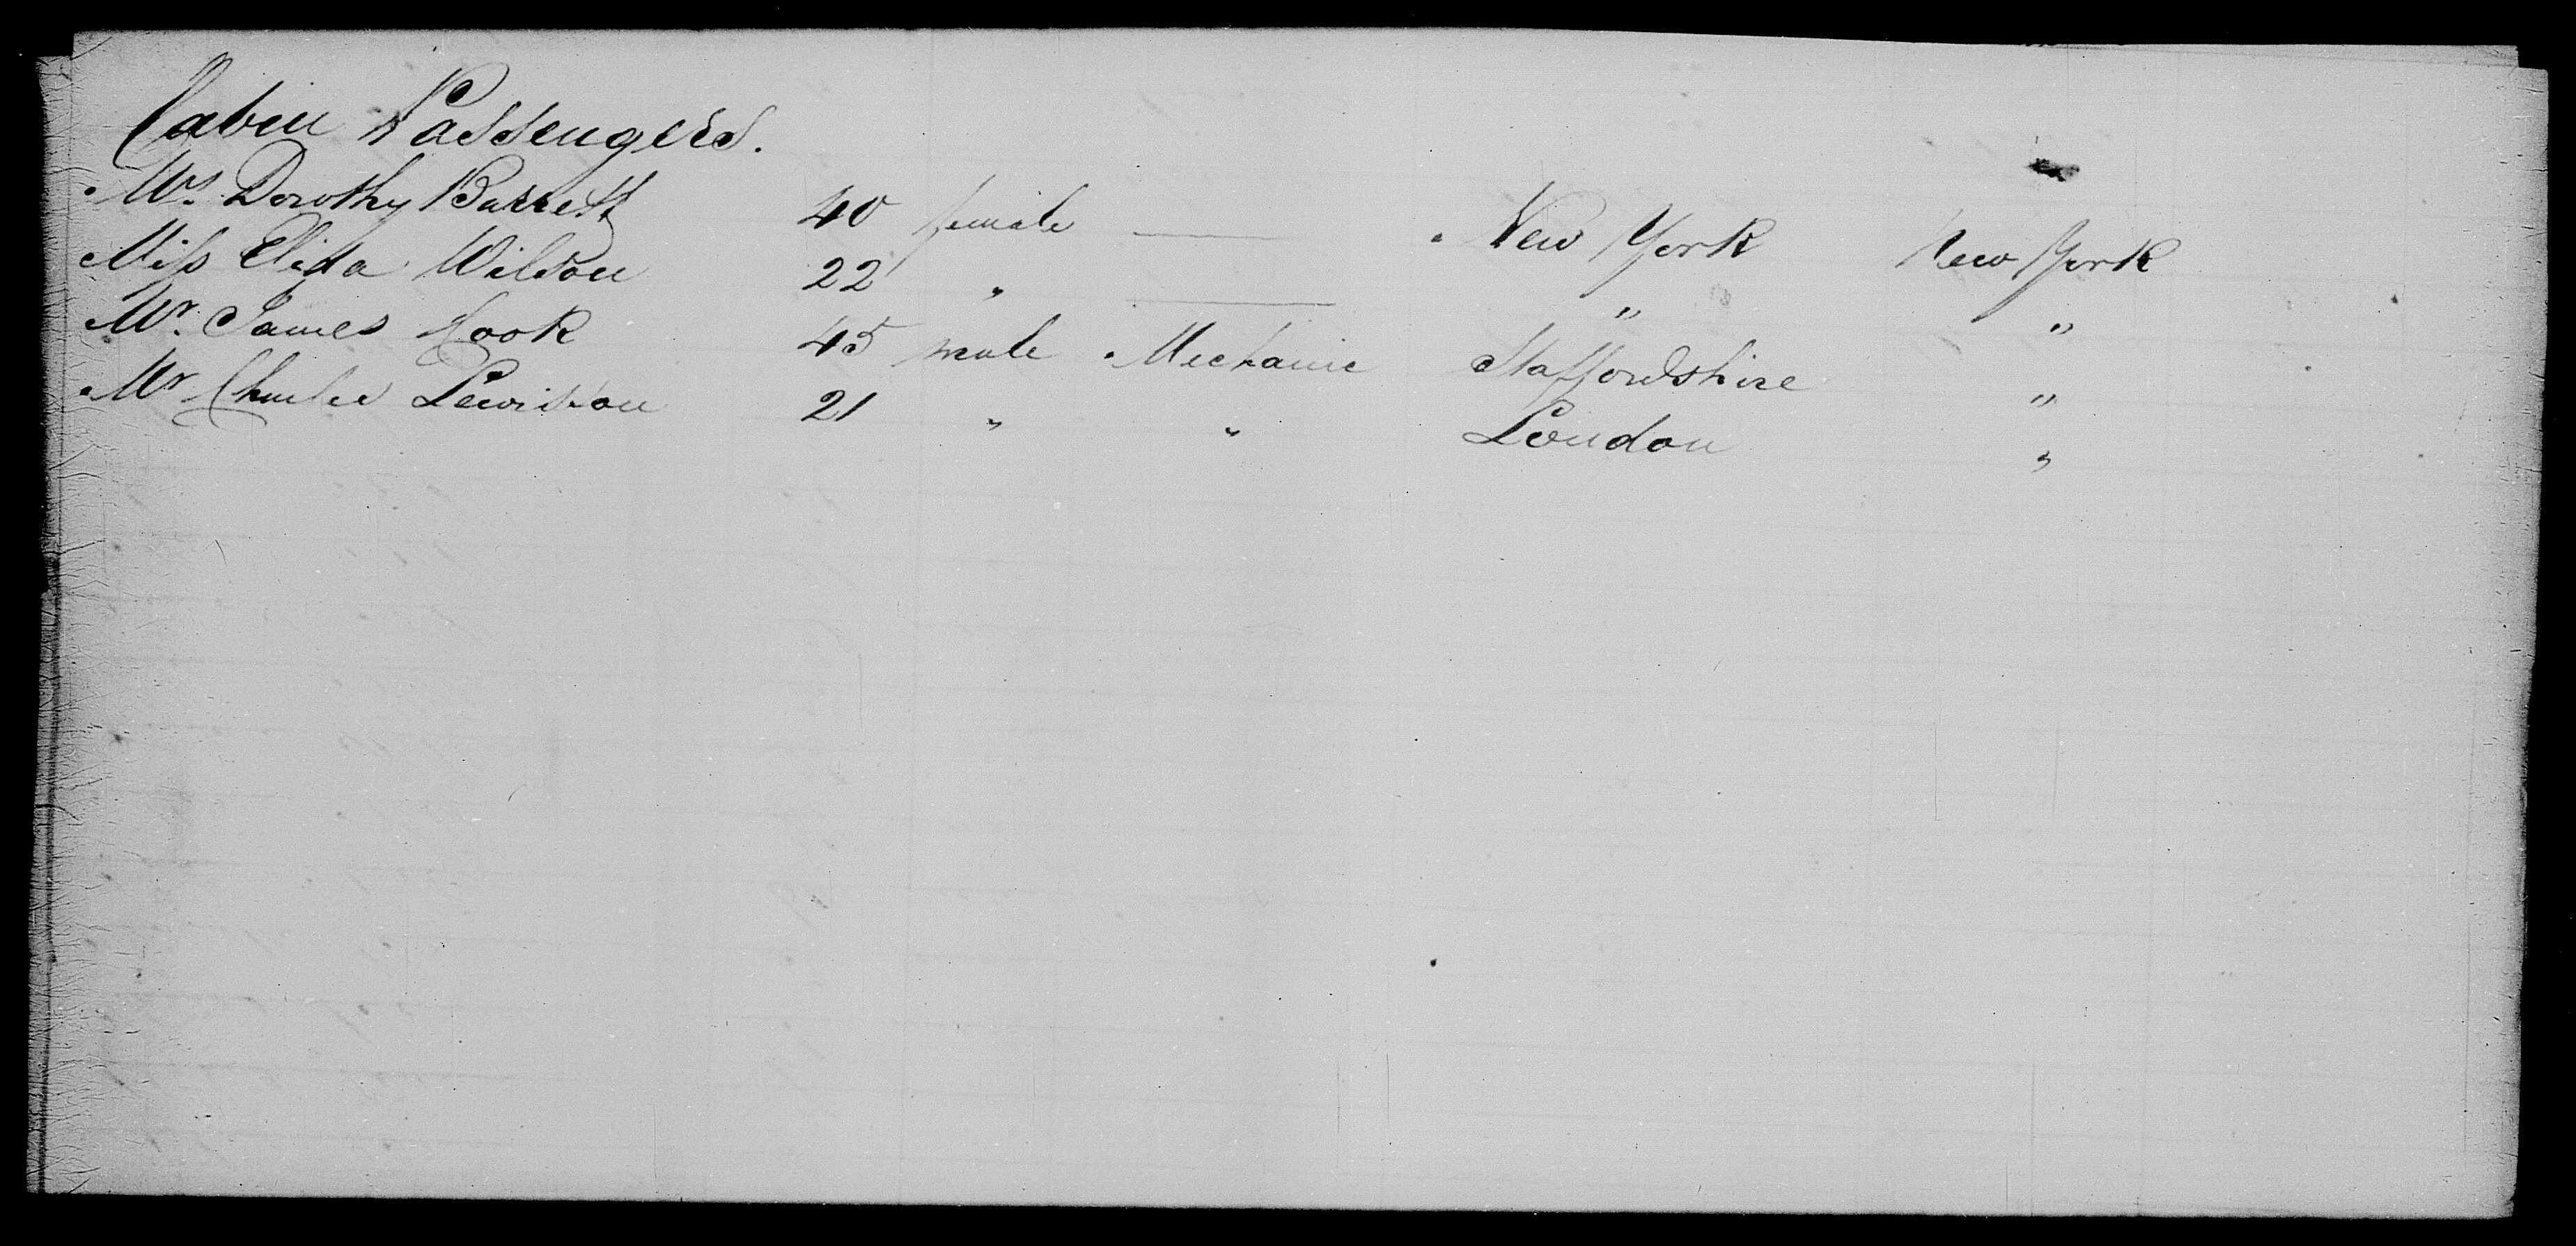 Cabin Passengers.
Mrs. Dorothy Barrett 40 female —— New York New York
Miss Eliza Wilson 22 " —— " "
Mr. James Cook 45 male Mechanic Staffordshire "
Mr Charles Lewiston 21 " " London "